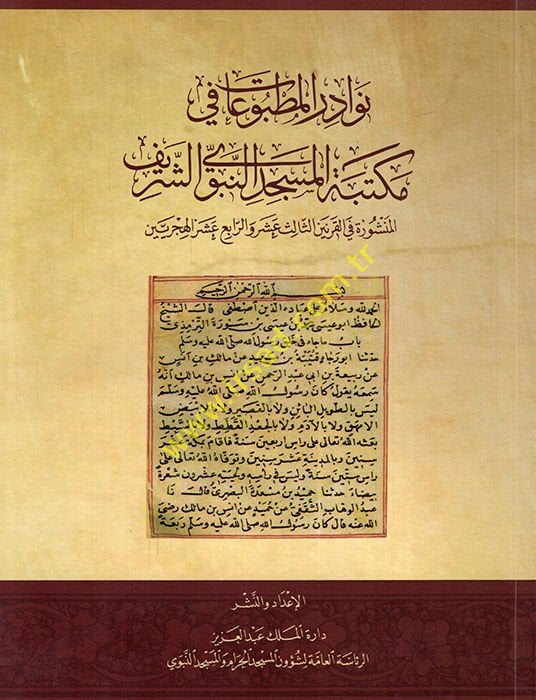 نوادر المطبوعات في
مكتبة المسجد النبوي الشريف
المنشورة في القرنين الثالث عشر والرابع عشر الهجريين
بسم الله الرحمن الرحيم
الحمد لله وسلام على عباده الذين اصطفى قال الشيخ
الحافظ ابو عيسى محمد بن عيسى بن سورة الترمذي
باب ما جاء في خلق رسول الله صلى الله عليه وسلم
حدثنا ابو رجاء قتيبة بن سعيد عن مالك بن انس
عن ربيعة بن ابي عبد الرحمن عن انس بن مالك انه
سمعه يقول كان رسول الله صلى الله عليه وسلم
ليس بالطويل البائن ولا بالقصير ولا بالابيض
الامهق ولا بالادم ولا بالجعد القطط ولا بالسبط
بعثه الله تعالى على راس اربعين سنة فاقام بمكة عشر
سنين وبالمدينة عشر سنين وتوفاه الله تعالى على
راس ستين سنة وليس في راسه ولحيته عشرون شعرة
بيضاء حدثنا حميد بن مسعدة البصري قال ثنا
عبد الوهاب الثقفي عن حميد عن انس بن مالك رضي
الله عنه قال كان رسول الله صلى الله عليه وسلم ربعة
الإعداد والنشر
دارة الملك عبد العزيز
الرئاسة العامة لشؤون المسجد الحرام والمسجد النبوي